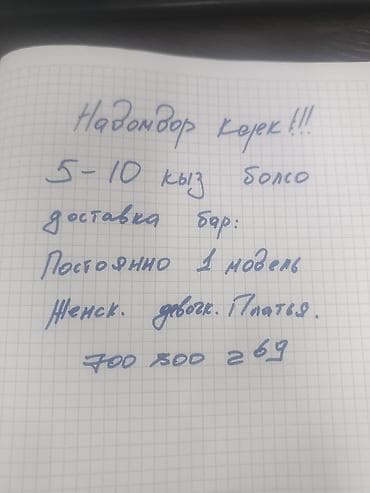 Надомдор керек!!!
5-10 кыз болсо
доставка бар:
Постоянно 1 модель
Женск. девочк. Платья.
700 500 269